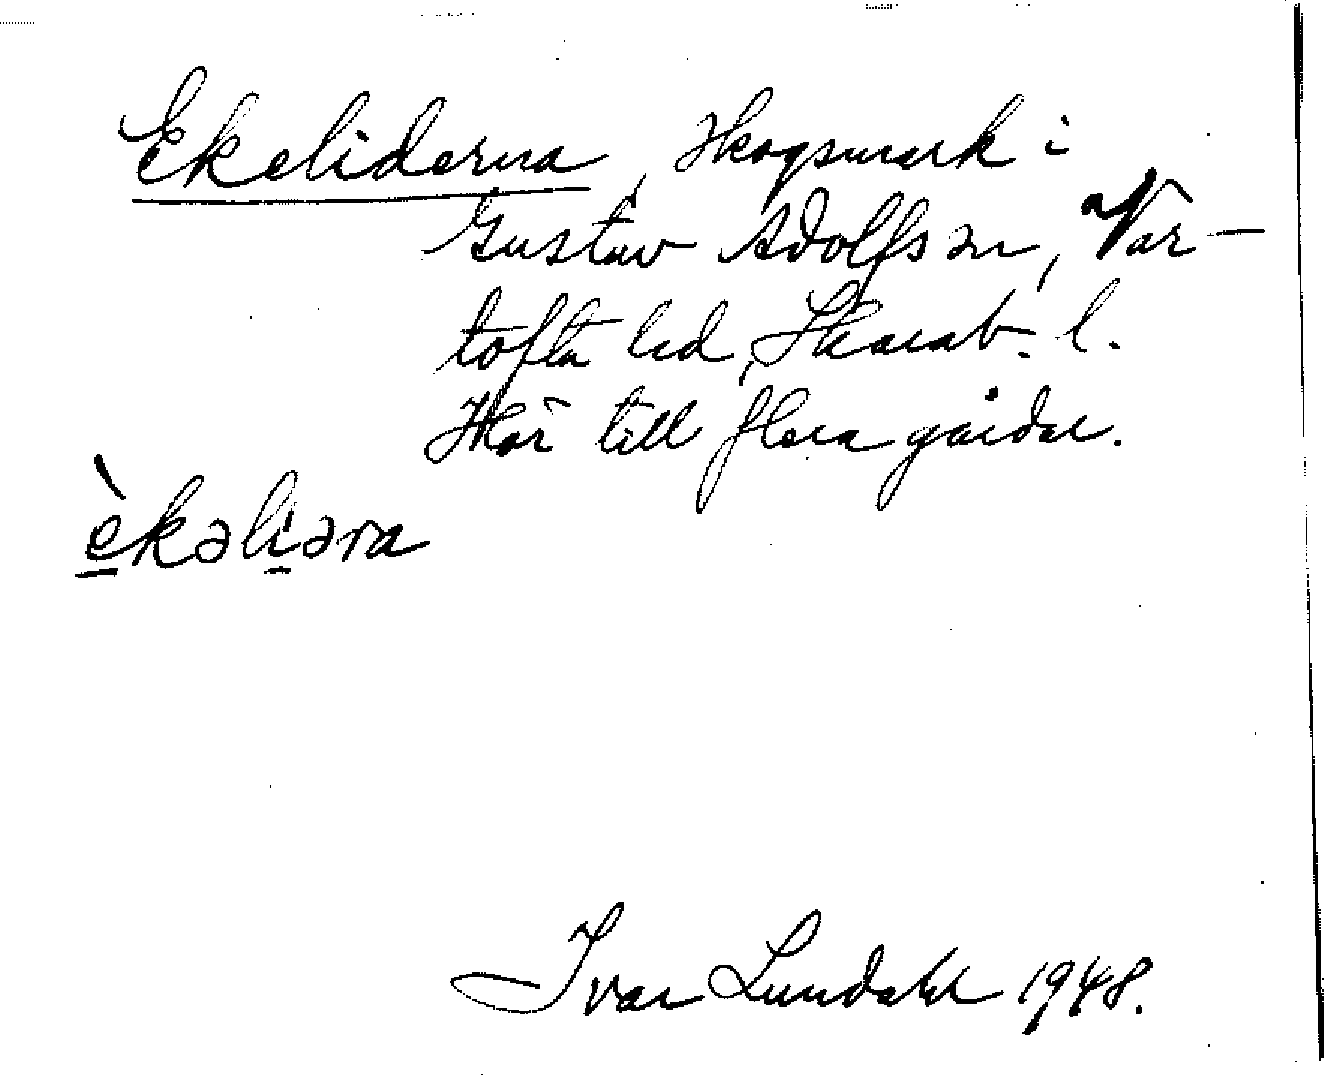 Ekeliderna, skogsmark i
Gustav Adolfs sn, Var-
tofta hd, Skarab. l.
Hör till flera gårdar.
èkəliəra
Ivar Lundahl 1948.